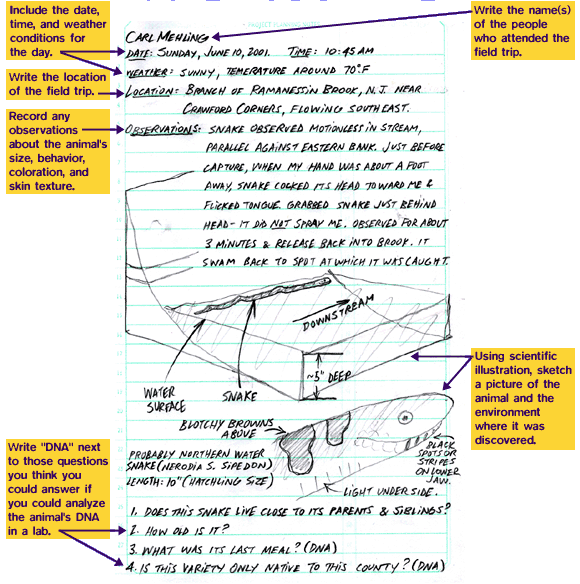 Include the date,
time, and weather
conditions for
the day.
Write the location
of the field trip.
Record any
observations
about the animal's
size, behavior,
coloration, and
skin texture.
Write "DNA" next
to those questions
you think you
could answer if
you could analyze
the animal's DNA
in a lab.
Write the name(s)
of the people
who attended the
field trip.
Using scientific
illustration, sketch
a picture of the
animal and the
environment
where it was
discovered.
PROJECT PLANNING NOTES
CARL MEHLING
DATE: SUNDAY, JUNE 10, 2001. TIME: 10:45 AM
WEATHER: SUNNY, TEMERATURE AROUND 70°F
LOCATION: BRANCH OF RAMANESSIN BROOK, N.J. NEAR
CRAWFORD CORNERS, FLOWING SOUTHEAST.
OBSERVATIONS: SNAKE OBSERVED MOTIONLESS IN STREAM,
PARALLEL AGAINST EASTERN BANK. JUST BEFORE
CAPTURE, WHEN MY HAND WAS ABOUT A FOOT
AWAY, SNAKE COCKED ITS HEAD TOWARD ME &
FLICKED TONGUE. GRABBED SNAKE JUST BEHIND
HEAD- IT DID NOT SPRAY ME. OBSERVED FOR ABOUT
3 MINUTES & RELEASE BACK INTO BROOK. IT
SWAM BACK TO SPOT AT WHICH IT WAS CAUGHT.
DOWNSTREAM
~3" DEEP
WATER
SURFACE
SNAKE
BLOTCHY BROWNS
ABOVE
BLACK
SPOTS OR
STRIPES
ON LOWER
JAW.
PROBABLY NORTHERN WATER
SNAKE (NERODIA S. SIPEDON)
LENGTH: 10" (HATCHLING SIZE)
LIGHT UNDERSIDE.
1. DOES THIS SNAKE LIVE CLOSE TO ITS PARENTS & SIBLINGS?
2. HOW OLD IS IT?
3. WHAT WAS ITS LAST MEAL? (DNA)
4. IS THIS VARIETY ONLY NATIVE TO THIS COUNTY? (DNA)